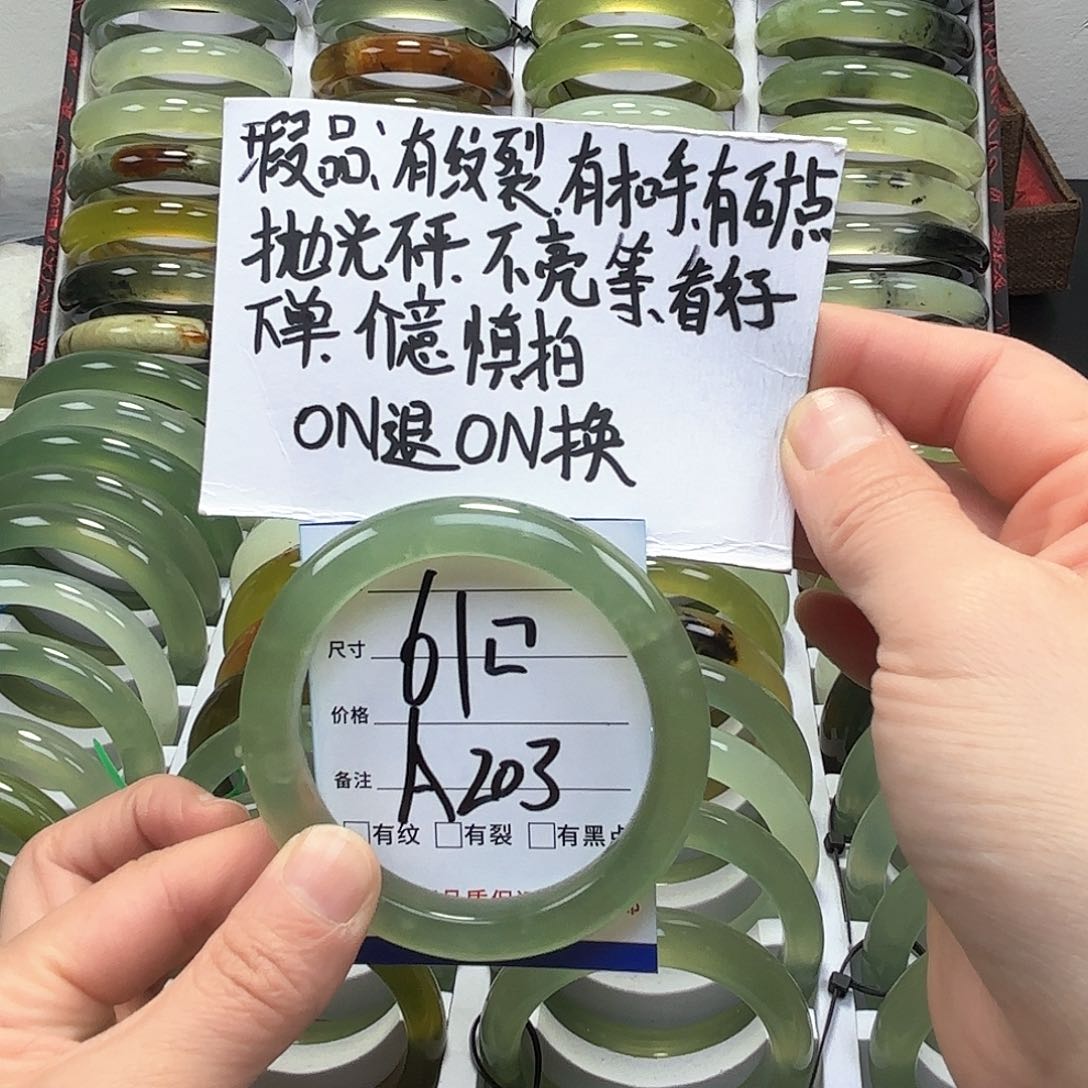 瑕品、有纹裂.有扣手.有矿点
抛光砰.不亮等.看好
下单.介意慎拍
ON退ON换
尺寸 61口
价格
备注 A203
□有纹 □有裂 □有黑点
品质保